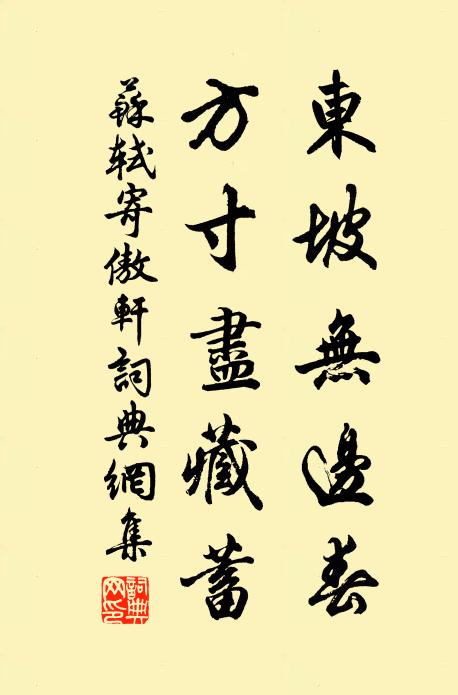 東坡無邊春
方寸盡藏蓄
蘇軾寄傲軒詞典網集
詞典網印